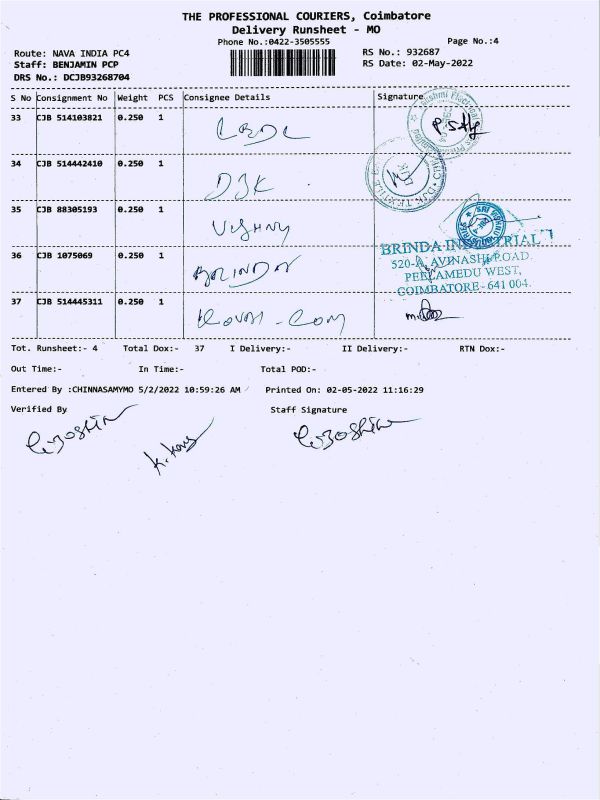 THE PROFESSIONAL COURIERS, Coimbatore
Delivery Runsheet - MO
Phone No.:0422-3505555 Page No.:4
Route: NAVA INDIA PC4 RS No.: 932687
Staff: BENJAMIN PCP RS Date: 02-May-2022
DRS No.: DCJB93268704
S No Consignment No Weight PCS Consignee Details Signature
33 CJB 514103821 0.250 1
34 CJB 514442410 0.250 1 DJK
35 CJB 88305193 0.250 1 VISHNU
36 CJB 1075069 0.250 1 BRINDA
BRINDA INDUSTRIAL
520-A, AVINASHI ROAD.
PEELAMEDU WEST,
COIMBATORE - 641 004.
37 CJB 514445311 0.250 1
Tot. Runsheet:- 4 Total Dox:- 37 I Delivery:- II Delivery:- RTN Dox:-
Out Time:- In Time:- Total POD:-
Entered By :CHINNASAMYMO 5/2/2022 10:59:26 AM Printed On: 02-05-2022 11:16:29
Verified By Staff Signature